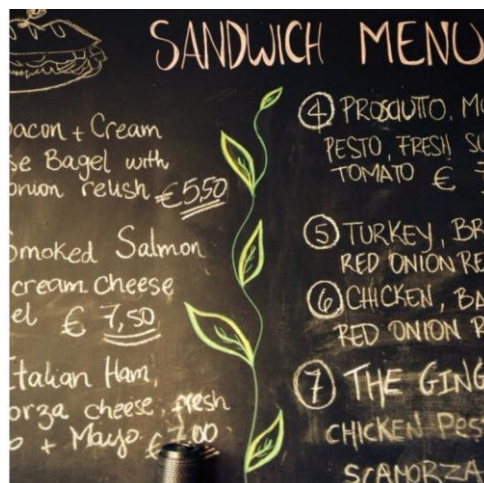 SANDWICH MENU
acon + Cream
se Bagel with
onion relish €5,50
Smoked Salmon
cream cheese
el € 7,50
Italian Ham,
orza cheese, fresh
o + Mayo. € .00
④ PROSCIUTTO, MO
PESTO, FRESH SU
TOMATO €
⑤ TURKEY, BR
RED ONION RE
⑥ CHICKEN, BA
RED ONION R
⑦ THE GING
CHICKEN PES
SCAMORZA